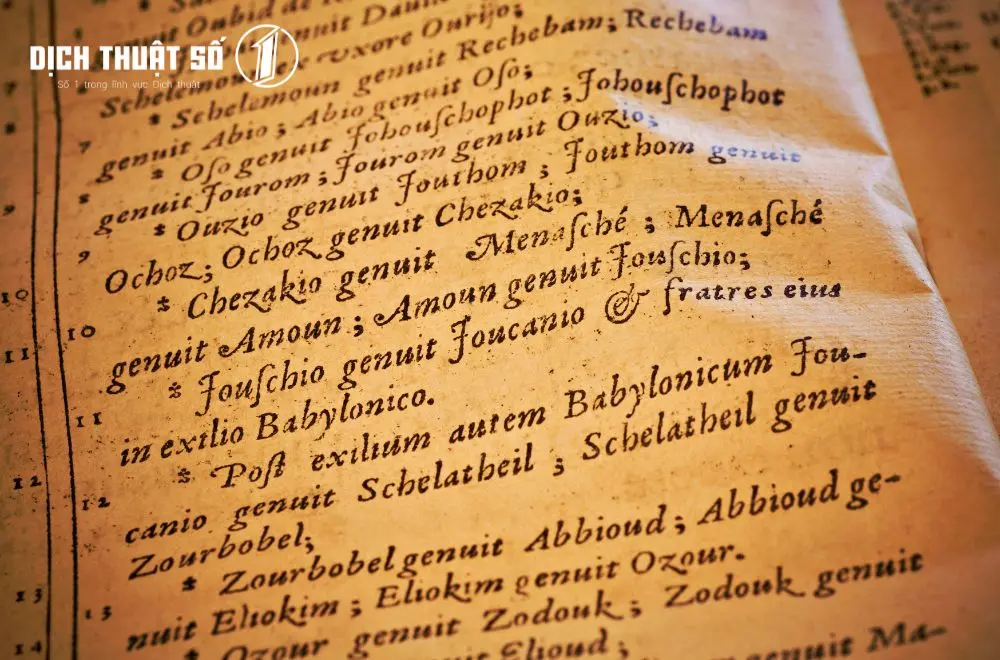 DỊCH THUẬT SỐ 1
Số 1 trong lĩnh vực Dịch thuật
nuit Oubid
uxore Ourijo;
7 * Schelomoun genuit Rechebam; Rechebam
genuit Abio; Abio genuit Oſo;
8 * Oſo genuit Johouſchophot; Johouſchophot
genuit Jourom; Jourom genuit Ouzio;
9 * Ouzio genuit Jouthom; Jouthom genuit
Ochoz; Ochoz genuit Chezakio;
10 10 * Chezakio genuit Menaſché; Menaſché
genuit Amoun; Amoun genuit Jouſchio;
11 11 * Jouſchio genuit Joucanio & fratres eius
in exilio Babylonico.
12 12 * Poſt exilium autem Babylonicum Jou-
canio genuit Schelatheil; Schelatheil genuit
Zourbobel;
13 13 * Zourbobel genuit Abbioud; Abbioud ge-
nuit Eliokim; Eliokim genuit Ozour.
14 * Ozour genuit Zodouk; Zodouk genuit
Elioud;
genuit Ma-